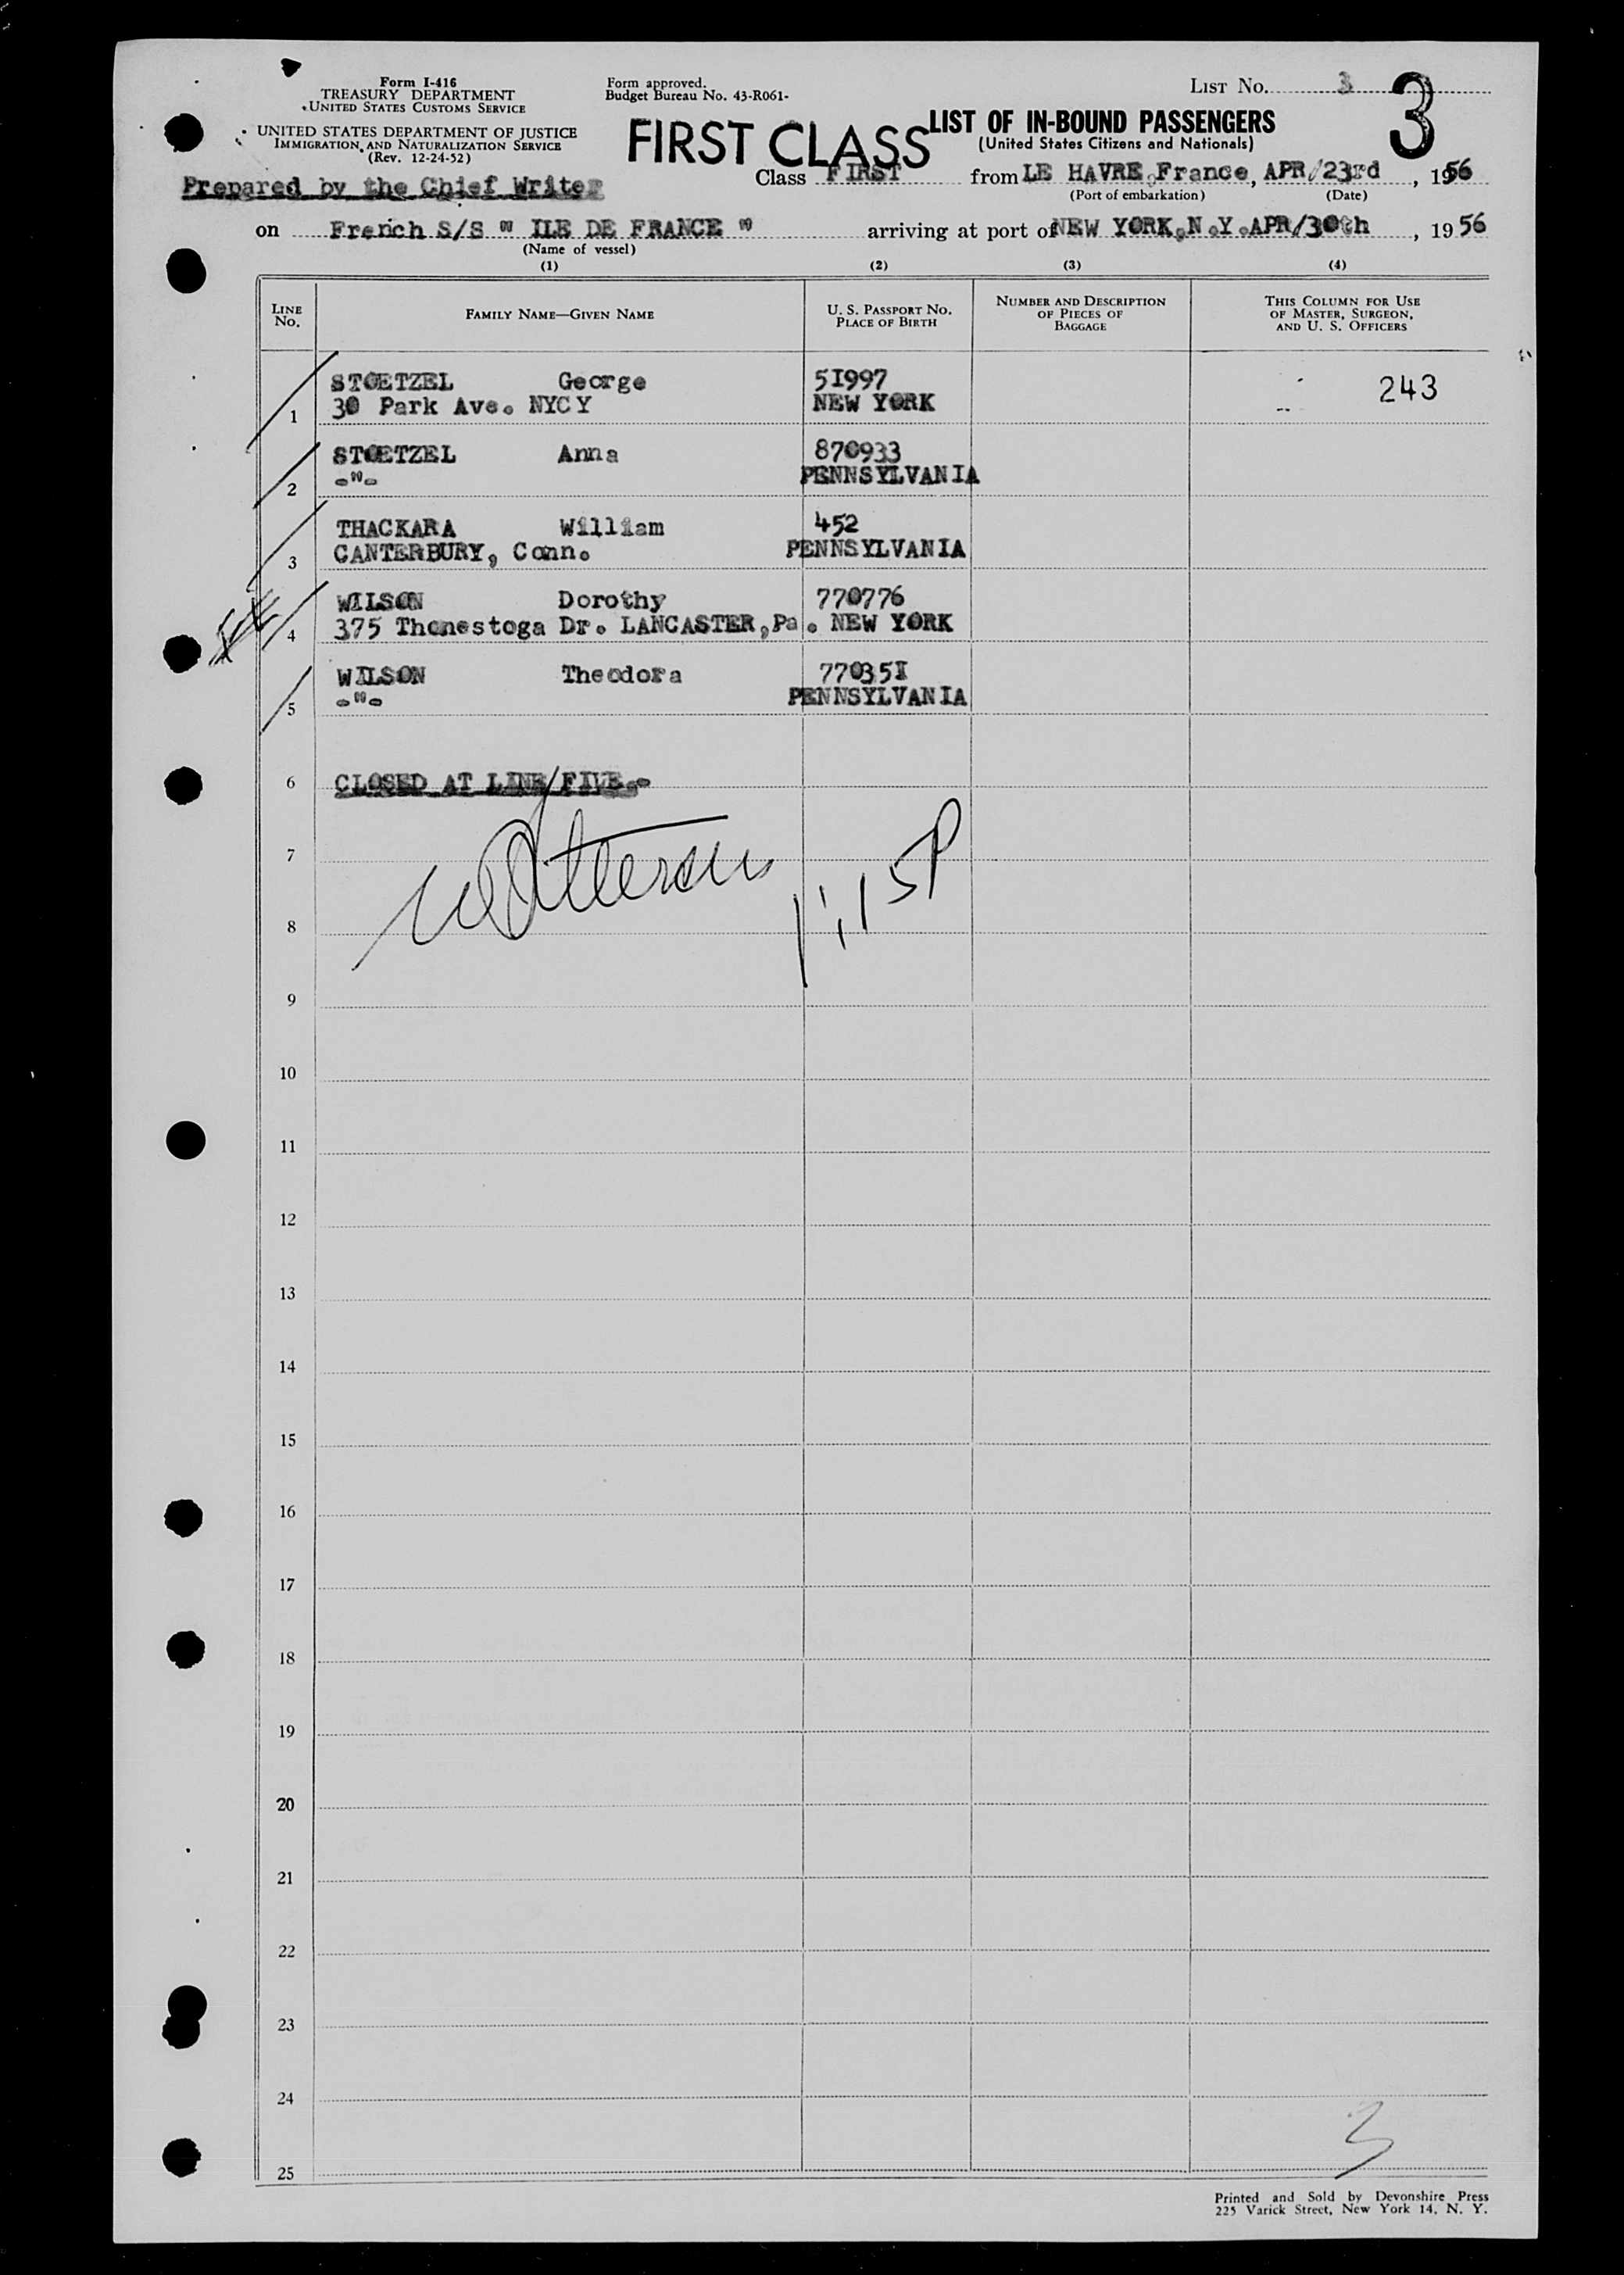 Form I-416
TREASURY DEPARTMENT
UNITED STATES CUSTOMS SERVICE
UNITED STATES DEPARTMENT OF JUSTICE
IMMIGRATION AND NATURALIZATION SERVICE
(Rev. 12-24-52)
Prepared by the Chief Writer
Form approved.
Budget Bureau No. 43-R061-
LIST No. 3
3
FIRST CLASS
LIST OF IN-BOUND PASSENGERS
(United States Citizens and Nationals)
Class FIRST from LE HAVRE, France, APR/23rd, 1956
(Port of embarkation) (Date)
on French S/S " ILE DE FRANCE " arriving at port of NEW YORK,N.Y.APR/30th, 1956
(Name of vessel)
(1) (2) (3) (4)
LINE No. FAMILY NAME—GIVEN NAME U. S. PASSPORT No. PLACE OF BIRTH NUMBER AND DESCRIPTION OF PIECES OF BAGGAGE THIS COLUMN FOR USE OF MASTER, SURGEON, AND U. S. OFFICERS
STOETZEL George 5I997 243
1 30 Park Ave. NYCY NEW YORK
STOETZEL Anna 870933
2 -"- PENNSYLVANIA
THACKARA William 452
3 CANTERBURY, Conn. PENNSYLVANIA
WILSON Dorothy 770776
4 375 Thonestoga Dr. LANCASTER,Pa. NEW YORK
WILSON Theodora 77035I
5 -"- PENNSYLVANIA
6 CLOSED AT LINE FIVE.-
7
8
9
10
11
12
13
14
15
16
17
18
19
20
21
22
23
24
3
25
Printed and Sold by Devonshire Press
225 Varick Street, New York 14, N. Y.